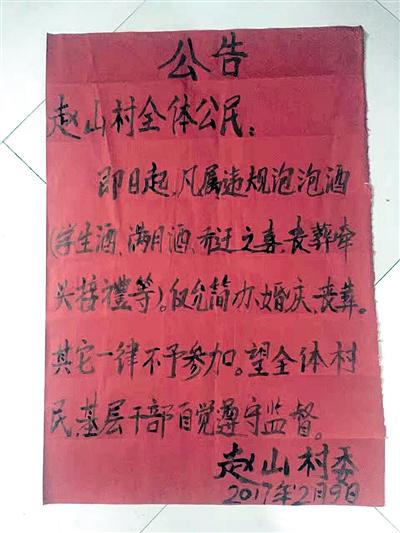 公告
赵山村全体公民：
即日起，凡属违规泡泡酒
(学生酒、满月酒、乔迁之喜、丧葬牵
头接禮等)。仅允简办、婚庆、丧葬。
其它一律不予参加。望全体村
民、基层干部自觉遵守监督。
赵山村委
2017年2月9日